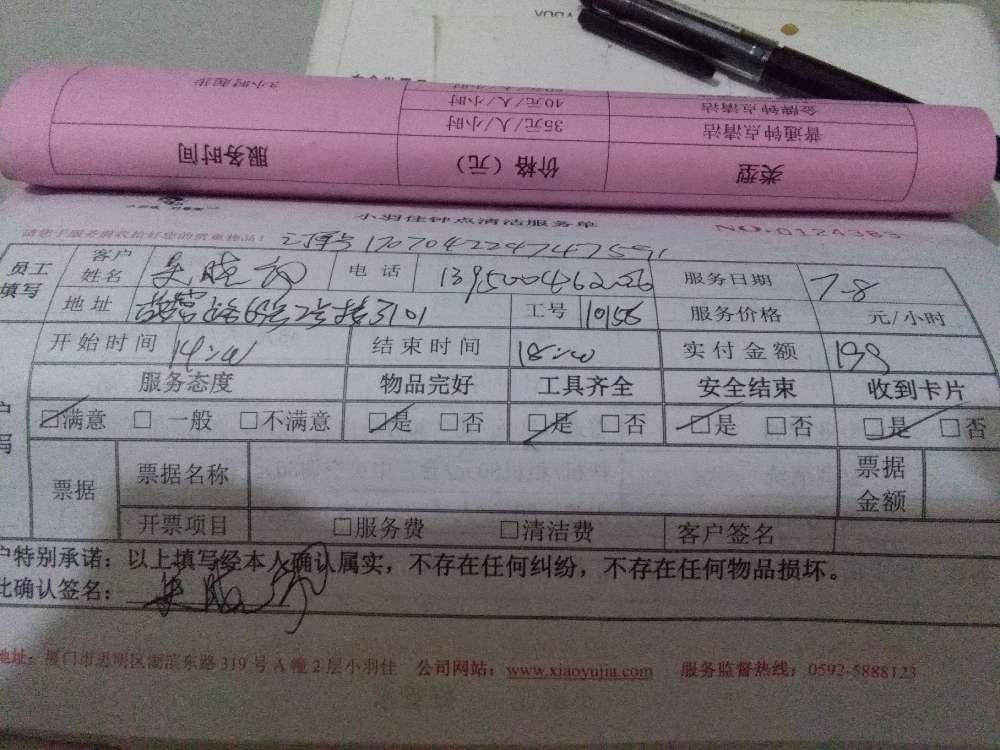 3小时起步
40元/人/小时 金牌钟点清洁
35元/人/小时 普通钟点清洁
服务时间 价格（元） 类型
小羽佳钟点清洁服务单
请您于服务前收拾好您的贵重物品！ NO.0124383
员工填写 客户姓名 电话 服务日期 7-8
地址 工号 10156 服务价格 元/小时
开始时间 14:00 结束时间 18:00 实付金额 199
服务态度 物品完好 工具齐全 安全结束 收到卡片
☑满意 □一般 □不满意 ☑是 □否 ☑是 □否 ☑是 □否 ☑是 □否
票据 票据名称 票据金额
开票项目 □服务费 □清洁费 客户签名
户特别承诺：以上填写经本人确认属实，不存在任何纠纷，不存在任何物品损坏。
此确认签名：
地址：厦门市思明区湖滨东路319号A幢2层小羽佳 公司网站：www.xiaoyujia.com 服务监督热线：0592-5888123